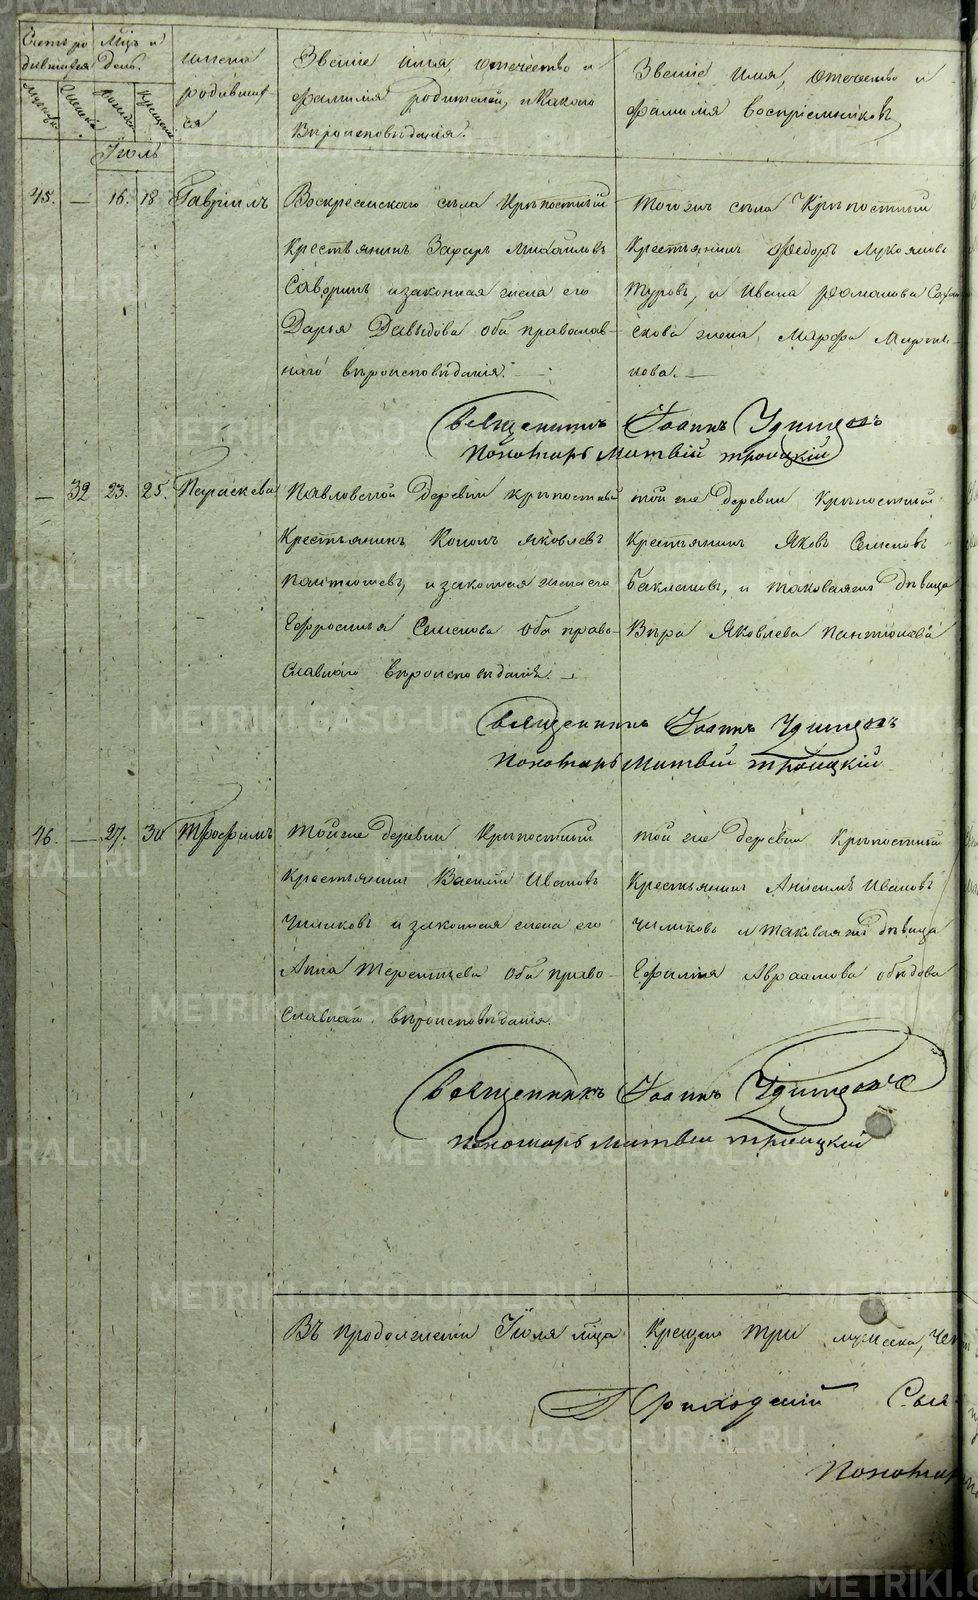 Счетъ ро
дившихся
Мужеска
Женска
Мѣцъ и
День.
рожден.
крещен.
имена
родивших
ся
Званіе имя, отечество и
фамилія родителей, и Какого
Вѣроисповѣданія.
Званіе Имя, отечество и
фамилія воспріемниковъ
Іюль
45. — 16. 18 Гавріилъ
Воскресенскаго села Крѣпостный
Крестьянинъ Захаръ Михайловъ
Саворинъ и законная жена его
Дарья Давыдова оба православ-
наго вѣроисповѣданія.
Тогоже села Крѣпостный
Крестьянинъ Федоръ Лукояновъ
Туровъ, и Ивана Романова
жена Марфа
нова.
священникъ Іоаннъ
Пономарь Матвій Троицкій
— 32 23. 25. Параскева
Павловской Деревни крѣпостный
Крестьянинъ Кононъ Яковлевъ
Пантюшевъ, и законная жена его
Ефросинья Семенова оба право-
славнаго вѣроисповѣданія.
той же деревни Крѣпостный
Крестьянинъ Яковъ Семеновъ
и таковаяже Дѣвица
Вѣра Яковлева Пантюшева
священникъ Іоаннъ
Пономарь Матвій Троицкій
46. — 27. 30 Трофимъ
Тойже деревни Крѣпостный
Крестьянинъ Василій Ивановъ
Чиликовъ и законная жена его
Анна Терентьева оба право-
славнаго вѣроисповѣданія.
той же деревни Крѣпостный
Крестьянинъ Анисимъ Ивановъ
Чиликовъ и таковаяже Дѣвица
Авраамова
священникъ Іоаннъ
Пономарь Матвій Троицкій
Въ продолженіи Іюля мѣца Крещено три мужеска,
Приходскій
Пономарь
METRIKI.GASO-URAL.RU